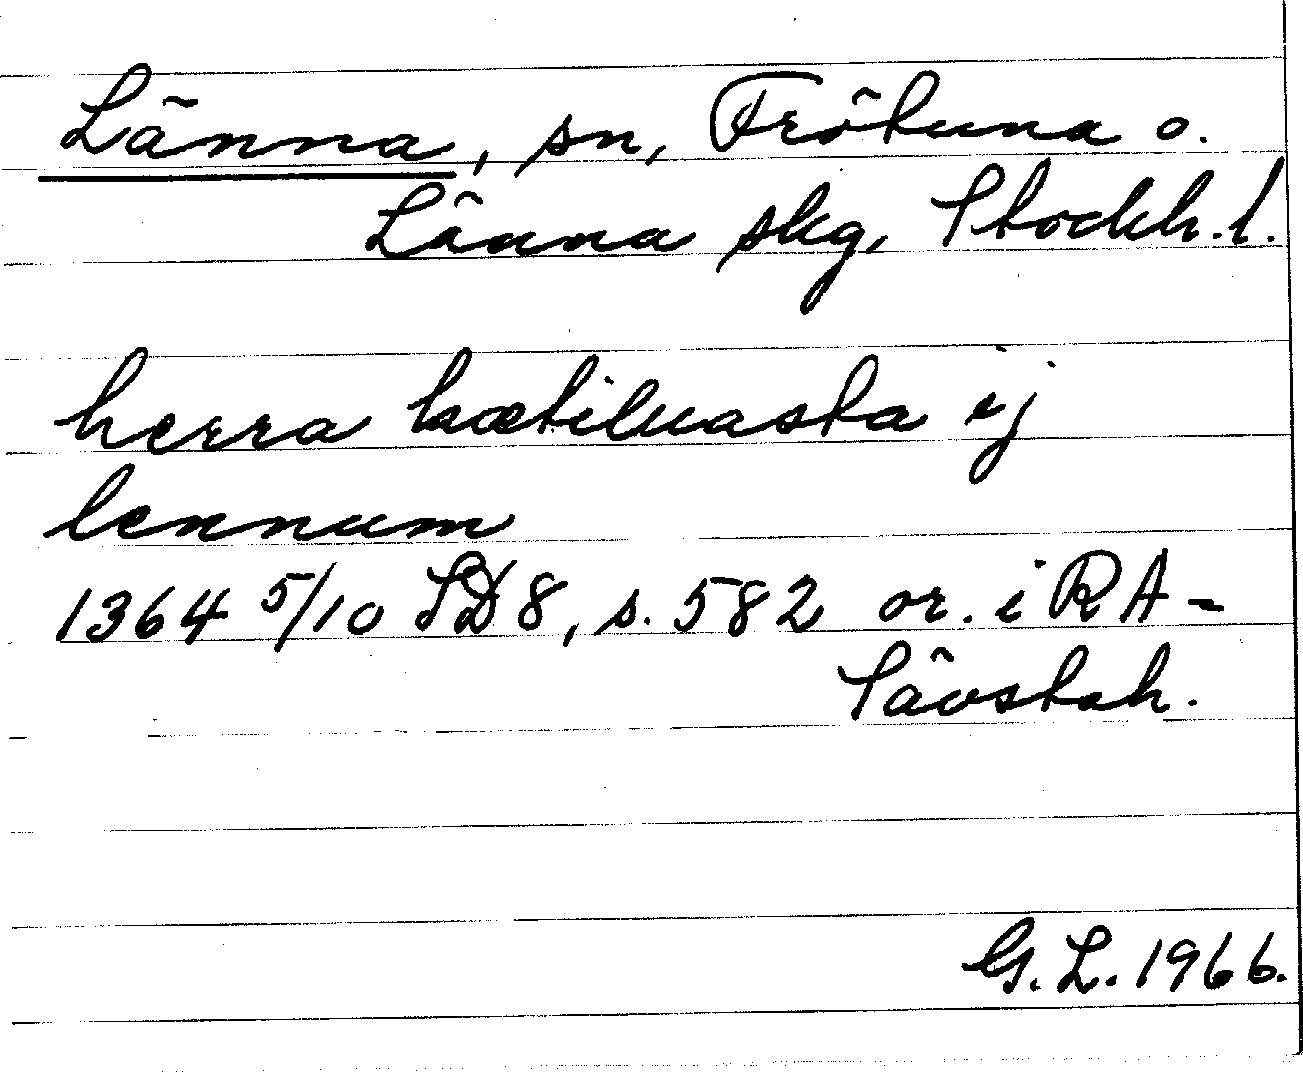 Länna, sn, Frötuna o.
Länna skg, Stockh. l.
herra kætiluasta ij
lennum
1364 5/10 SD 8, s. 582 or. i RA -
Sävstah.
G. L. 1966.